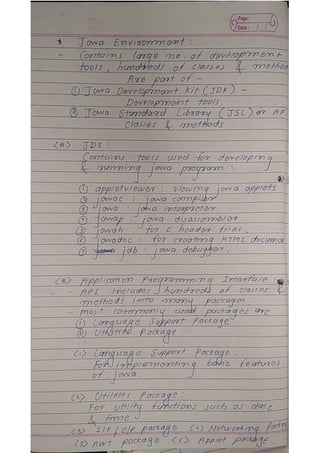 Page :
Date : / /
* Java Environment :
- Contains large no. of development
tools, hundreds of classes & metho
Are part of -
① Java Development Kit (JDK) -
Development tools
② Java Standard Library (JSL) or AP
Classes & methods
<A> JDK :
Contains tools used for developing
& running java program :
① appletviewer : viewing java applets
② javac : java compiler
③ java : java interpreter
④ javap : java disassembler.
⑤ javah : for C header files.
⑥ javadoc : for creating HTML documen
⑦ jdb : java debugger.
<B> Application Programming Interface
- API includes hundreds of classes &
methods into many packages
- most commonly used packages are
① Language Support Package
② Utilities Package
<1> Language Support Package :
For implementing basic features
of java
<2> Utilities Package :
For utility functions such as date
& time
<3> I/P / O/P package <4> Networking Packag
<5> AWT package <6> Applet package